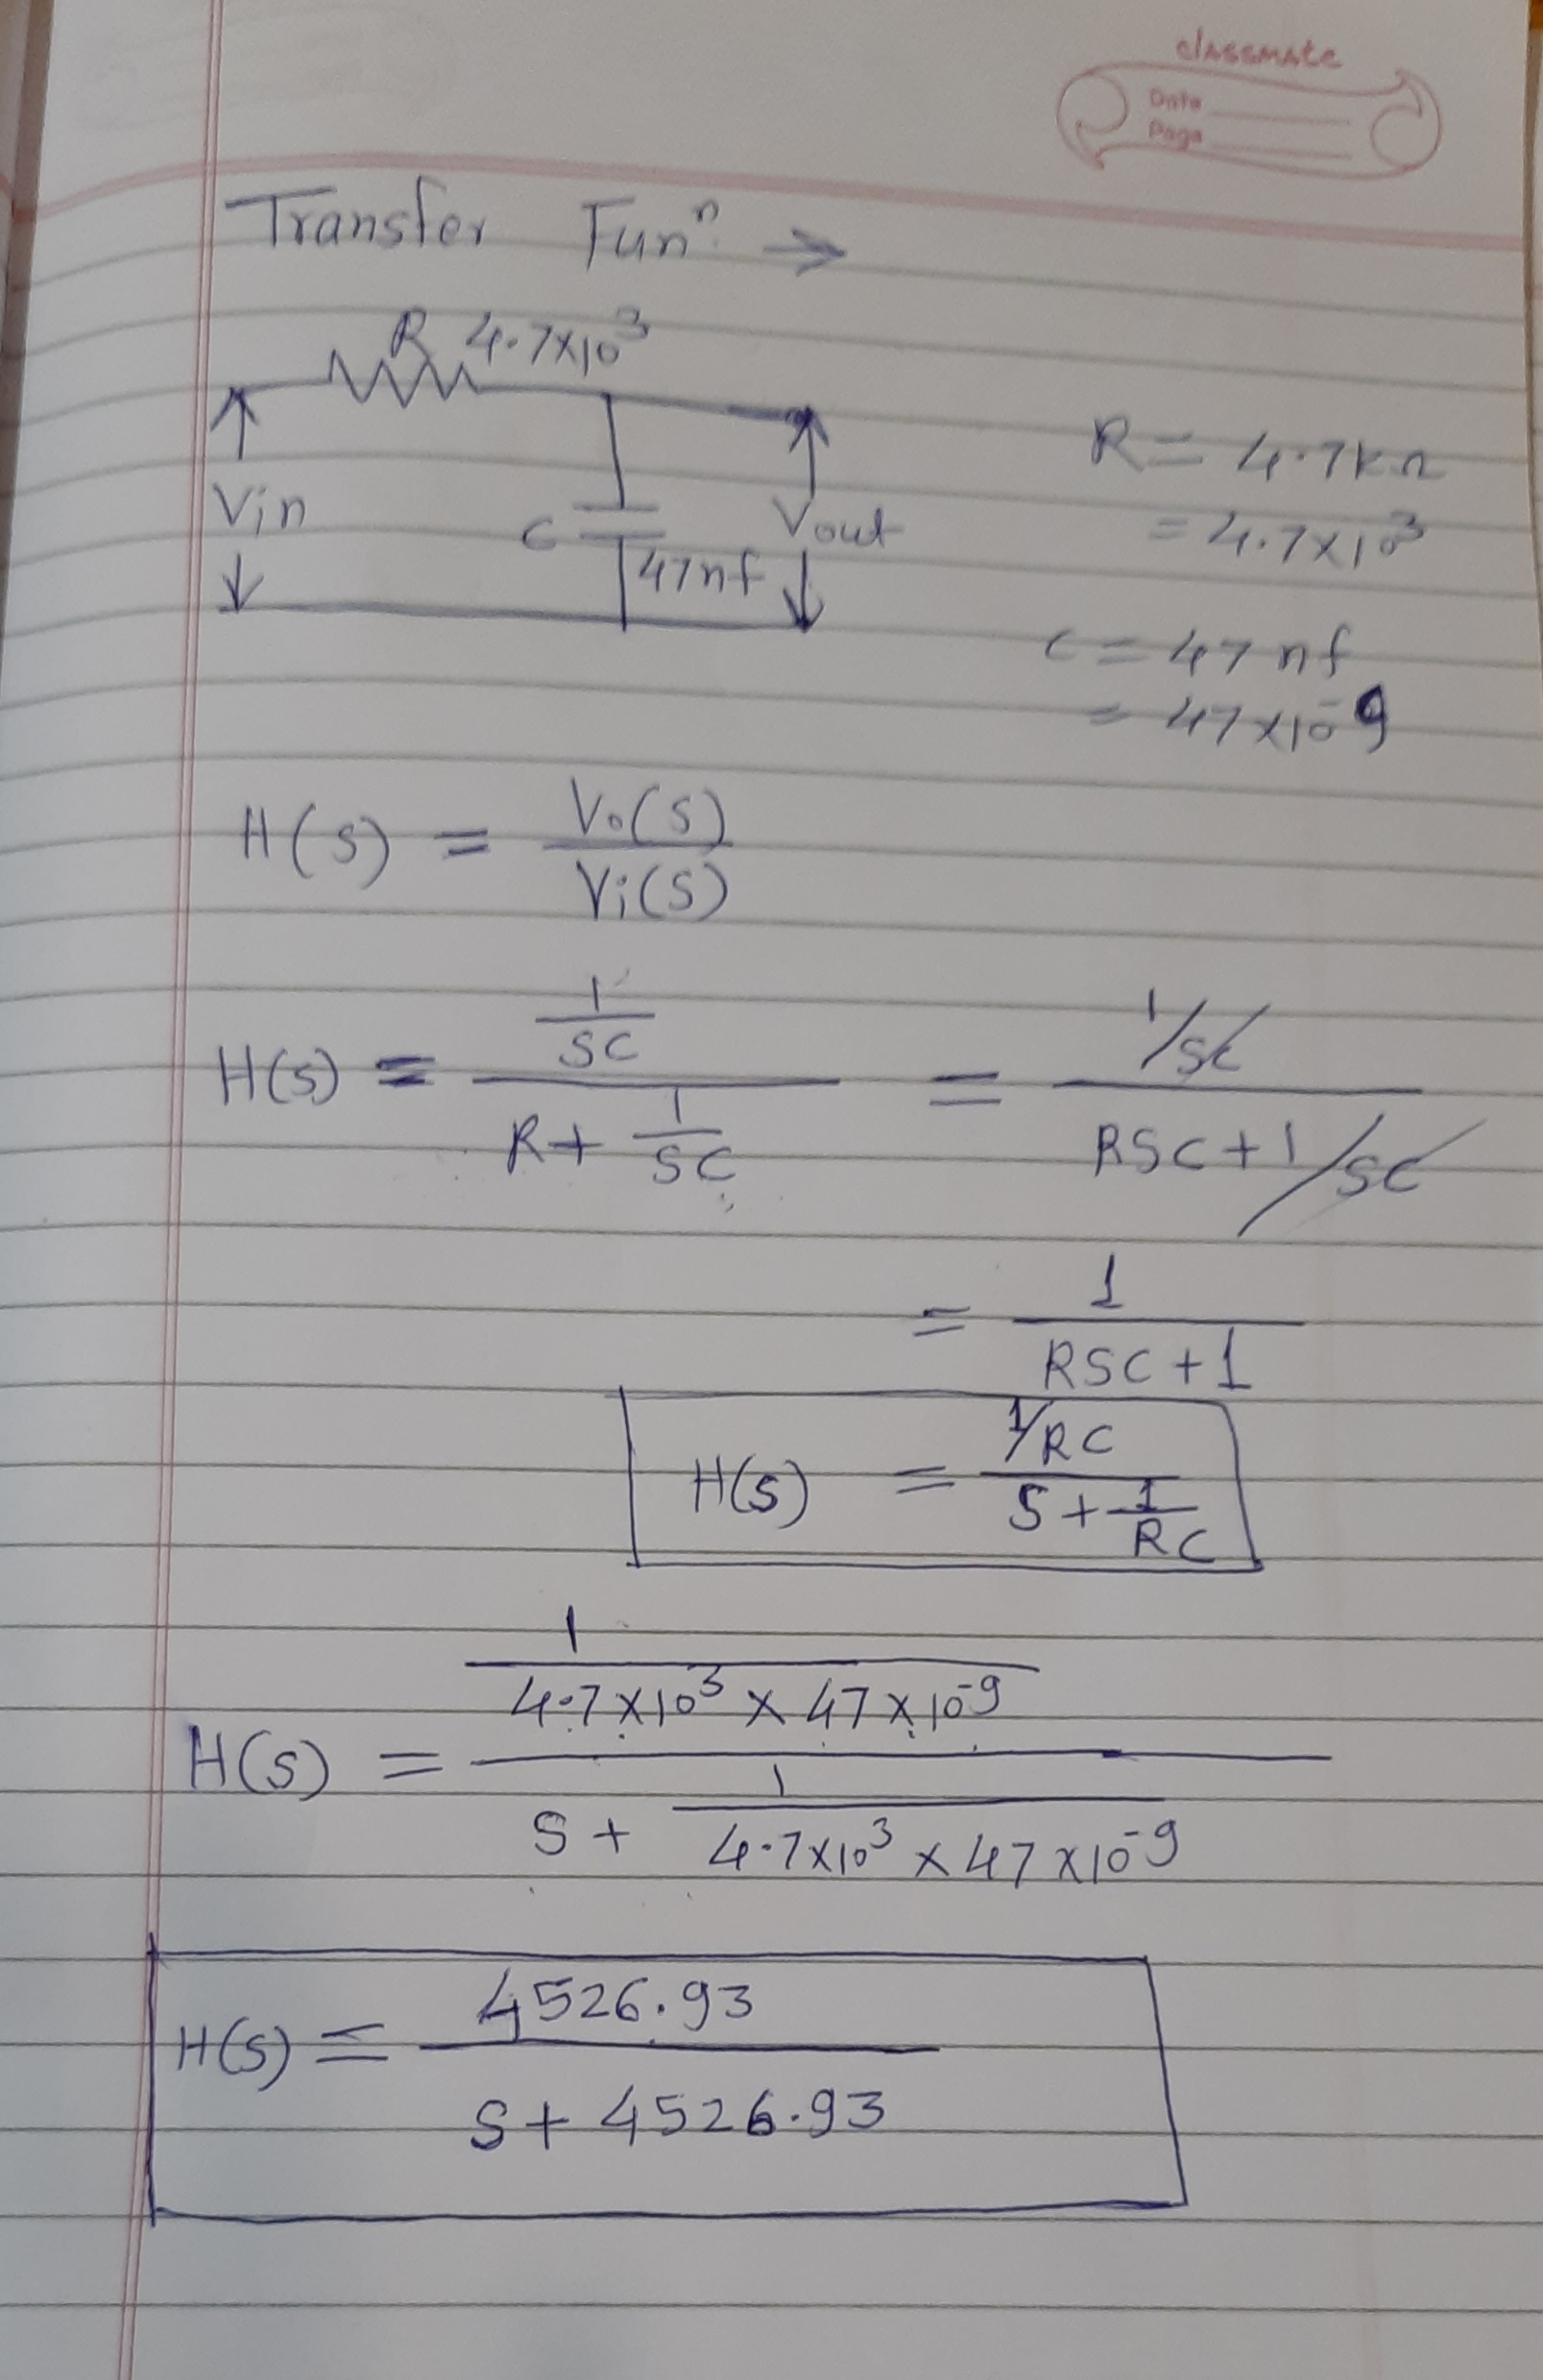 classmate
Date
Page
Transfer Funⁿ. →
R 4.7×10³
Vin
C
47nf
Vout
R = 4.7kΩ
= 4.7×10³
C = 47 nf
= 47×10⁻⁹
H(s) = Vo(s) / Vi(s)
H(s) = (1/SC) / (R + 1/SC) = (1/SC) / (RSC+1/SC)
= 1 / (RSC+1)
H(s) = (1/RC) / (S + 1/RC)
H(s) = (1 / (4.7×10³ × 47×10⁻⁹)) / (S + 1 / (4.7×10³ × 47×10⁻⁹))
H(s) = 4526.93 / (S + 4526.93)